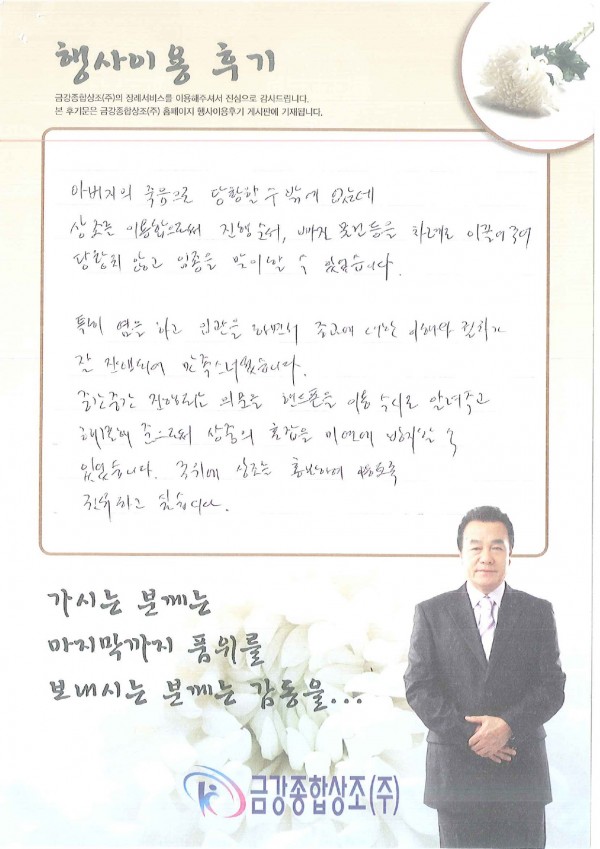 행사이용 후기
금강종합상조(주)의 장례서비스를 이용해주셔서 진심으로 감사드립니다.
본 후기문은 금강종합상조(주) 홈페이지 행사이용후기 게시판에 기재됩니다.
아버지의 죽음으로 당황할 수 밖에 없는데
상조를 이용함으로써 진행순서, 빠진 물건등을 차례로 이끌어주어
당황하지 않고 임종을 맞이할 수 있었습니다.
특히 염을 하고 입관을 하면서 종교에 대한 이해와 절차가
잘 진행되어 만족스러웠습니다.
중간중간 진행되는 의문을 핸드폰을 이용 수시로 알려주고
해결해 줌으로써 상중의 혼잡을 미연에 방지할 수
있었습니다. 주위에 상조를 홍보하여
권유하고 싶습니다.
가시는 분께는
마지막까지 품위를
보내시는 분께는 감동을...
금강종합상조(주)